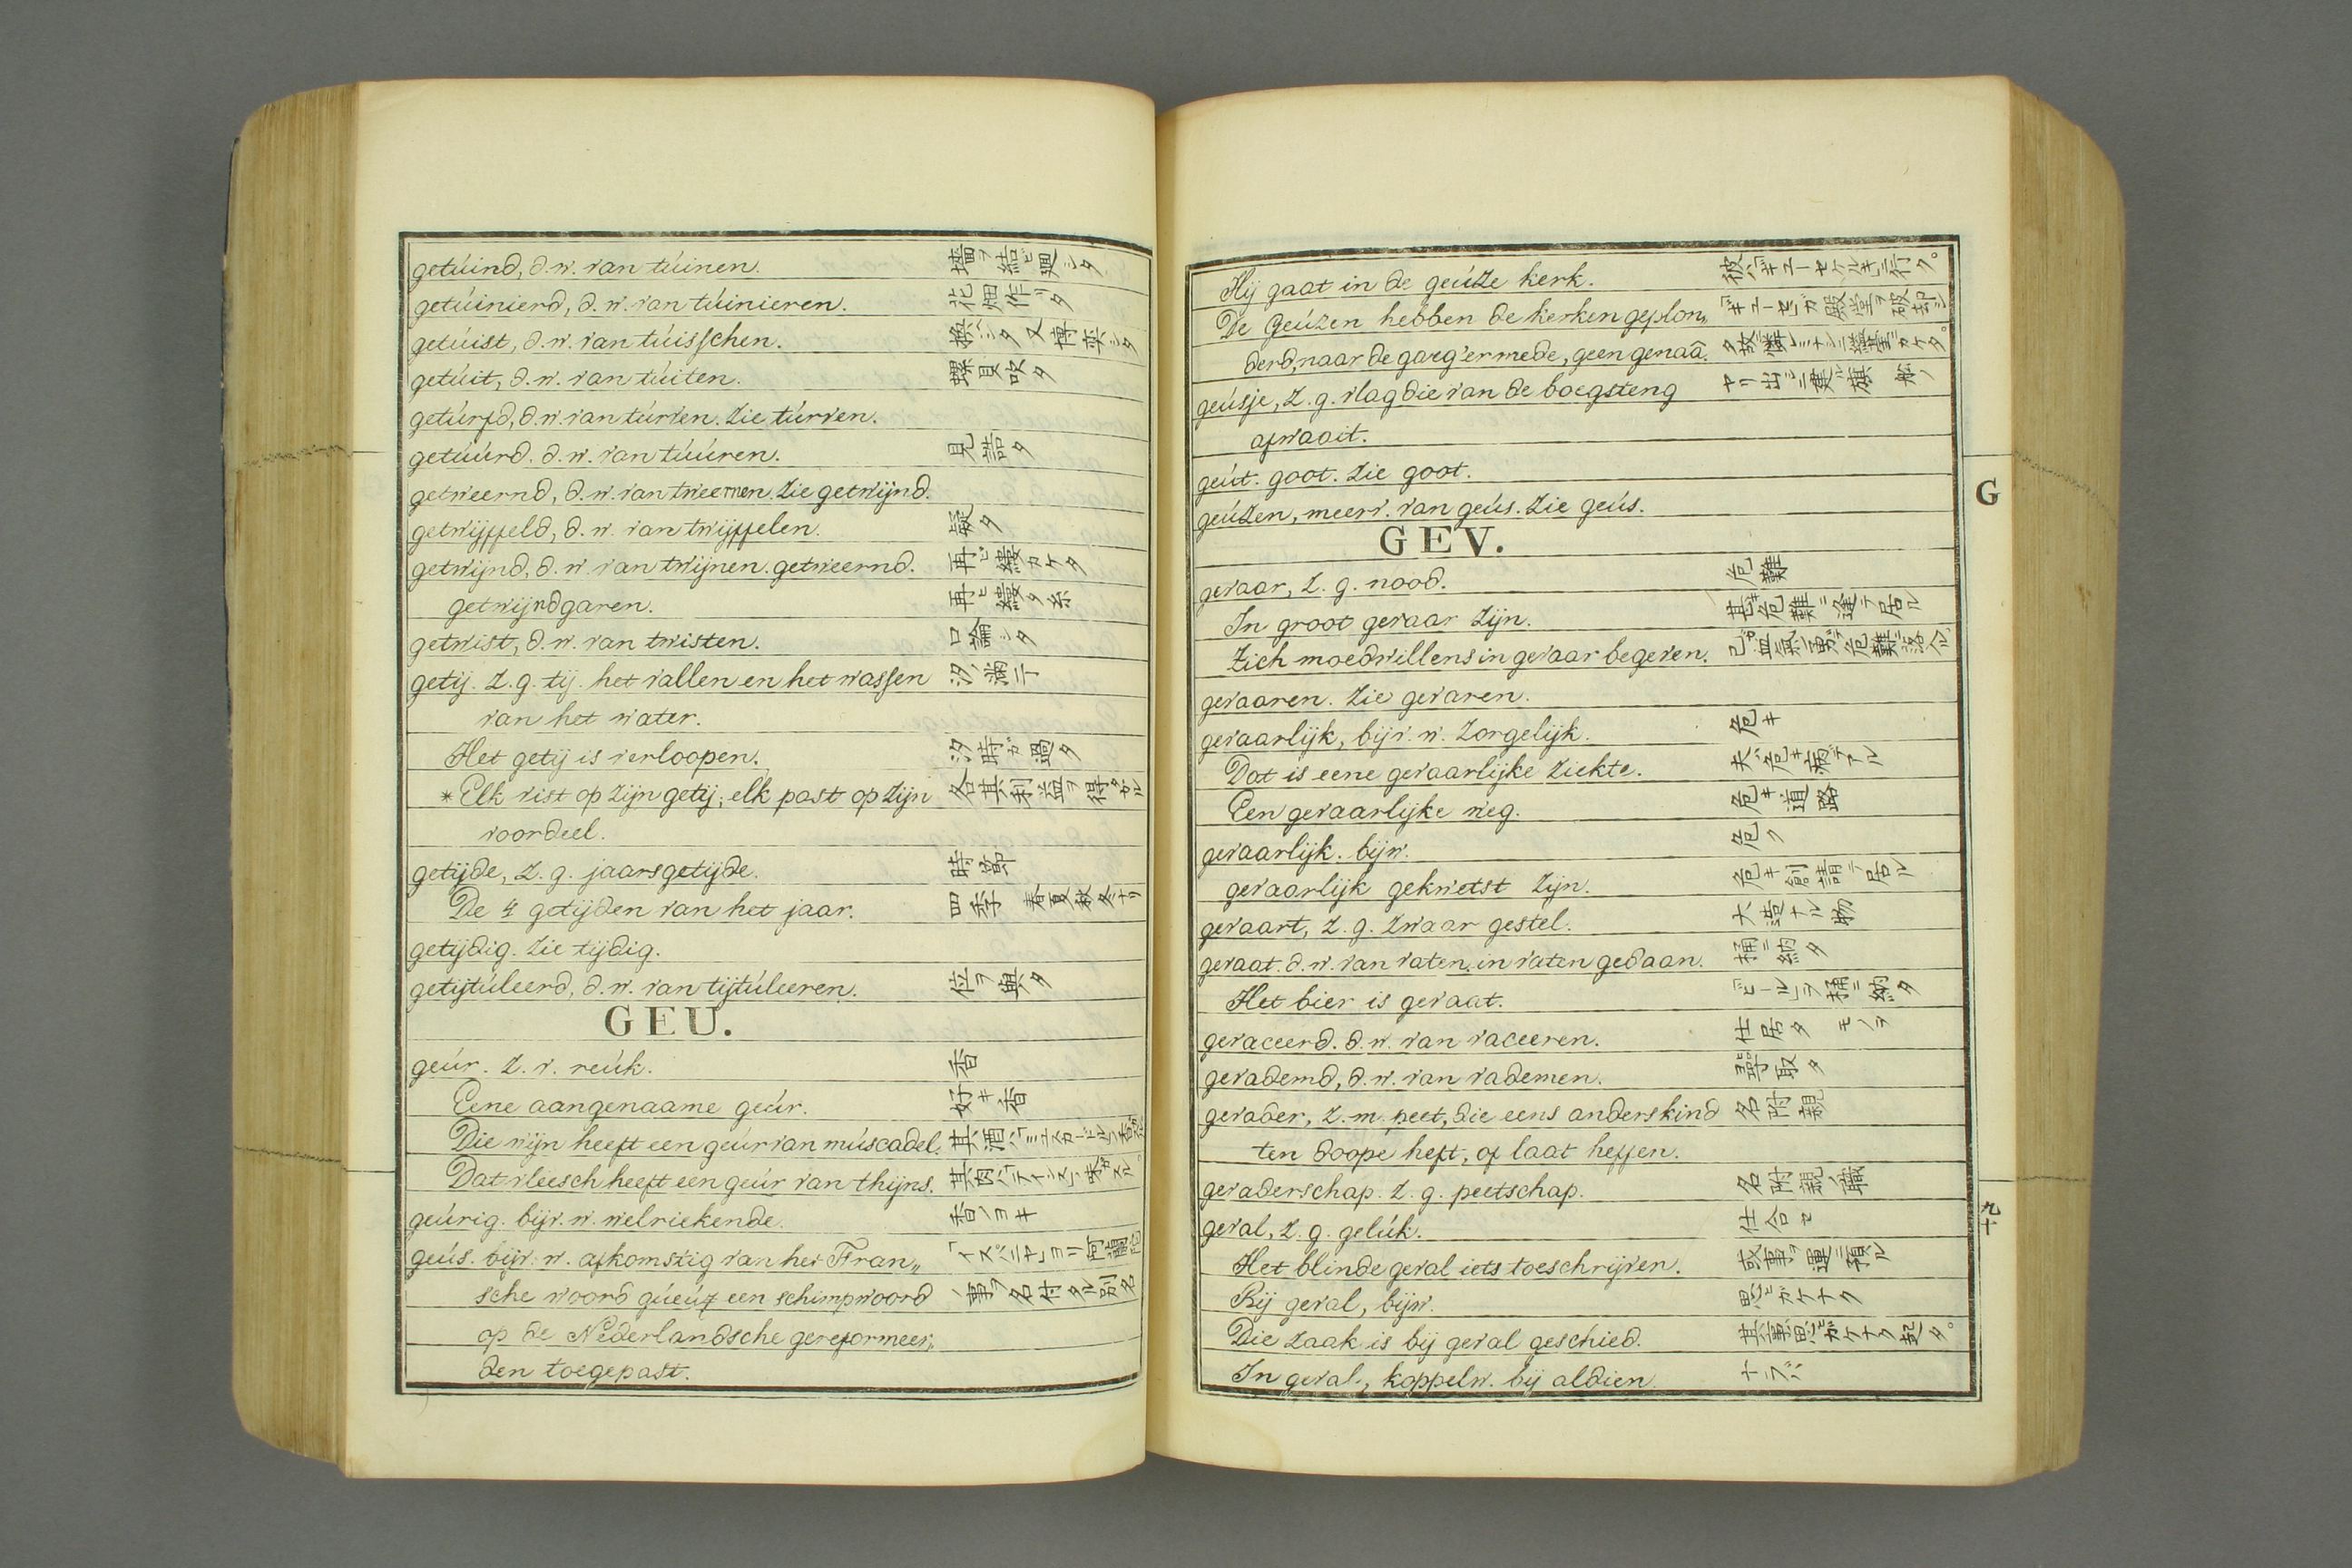 getúind, d. w. van túinen. 墻ヲ結ビ廻シタ
getúinierd, d. w. van túinieren. 花畑作リタ
getúist, d. w. van túisschen. 換ヘシタ 又博奕シタ
getúit, d. w. van túiten. 螺貝吹タ
getúrfd, d. w. van túrven. Zie túrven.
getúúrd. d. w. van túúren. 見詰タ
getweernd, d. w. van tweernen. Zie getwijnd.
getwijffeld, d. w. van twijffelen. 疑タ
getwijnd, d. w. van twijnen. getweernd. 再ビ縷カケタ
getwijndgaren. 再ビ縷タ糸
getwist, d. w. van twisten. 口論シタ
getij. z. g. tij. het vallen en het wassen 汐ノ満干
van het water.
Het getij is verloopen. 汐時ガ過タ
*Elk vist op zijn getij; elk past op zijn 各其利益ヲ得タガル
voordeel.
getijde, z. g. jaarsgetijde. 時節
De 4 getijden van het jaar. 四季 春夏秋冬ナリ
getijdig. Zie tijdig.
getijtúleerd, d. w. van tijtúleeren. 位ヲ與タ
GEU.
geúr. z. v. reúk. 香
Eene aangenaame geúr. 好キ香
Die wijn heeft een geúr van múscadel. 其酒ハ
Dat vleesch heeft een geúr van thijns. 其肉ハ
geúrig. bijv. w. welriekende. 香ノヨキ
geús. bijv. w. afkomstig van het Fran„ 「イスパニヤ」ヨリ阿蘭陀
sche woord gúeúz een schimpwoord ノ事ヲ名付タル別名
op de Nederlandsche gereformeer„
den toegepast.
Hij gaat in de geúze kerk. 彼ハ
De Geúzen hebben de kerken geplon„ 「ギユーセ」ガ殿堂ヲ破却シ
derd, naar de galg 'er mede, geen genaâ.
geúsje, z. g. vlag die van de boegsteng ヤリ出シニ建ル旗 舩ノ
afwaait.
geút. goot. Zie goot.
geúzen, meerv. van geús. Zie geús.
GEV.
gevaar, z. g. nood. 危難
In groot gevaar zijn. 甚キ危難ニ逢テ居ル
Zich moedwillens in gevaar begeven. 己ガ血氣ノ勇デ危難ニ
gevaaren. Zie gevaren.
gevaarlijk, bijv. w. zorgelijk. 危キ
Dat is eene gevaarlijke ziekte. 夫ハ危キ病デアル
Een gevaarlijke weg. 危キ道路
gevaarlijk. bijw. 危ク
gevaarlijk gekwetst zijn. 危キ創請テ居ル
gevaart, z. g. zwaar gestel. 大造ナル物
gevaat. d. w. van vaten. in vaten gedaan. 桶ニ納タ
Het bier is gevaat. 「ビール」ヲ桶ニ納タ
gevaceerd. d. w. van vaceeren. 仕居タ モノヲ
gevademd, d. w. van vademen. 尋取タ
gevader, z. m. peet, die eens anders kind 名附親
ten doope heft, of laat heffen.
gevaderschap. z. g. peetschap. 名附親ノ職
geval, z. g. gelúk. 仕合セ
Het blinde geval iets toeschrijven. 或事ヲ運ニ預ル
Bij geval, bijw. 思ヒガケナク
Die zaak is bij geval geschied. 其事思ヒガケナク起タ。
In geval, koppelw. bij aldien. ナラバ
G
九十